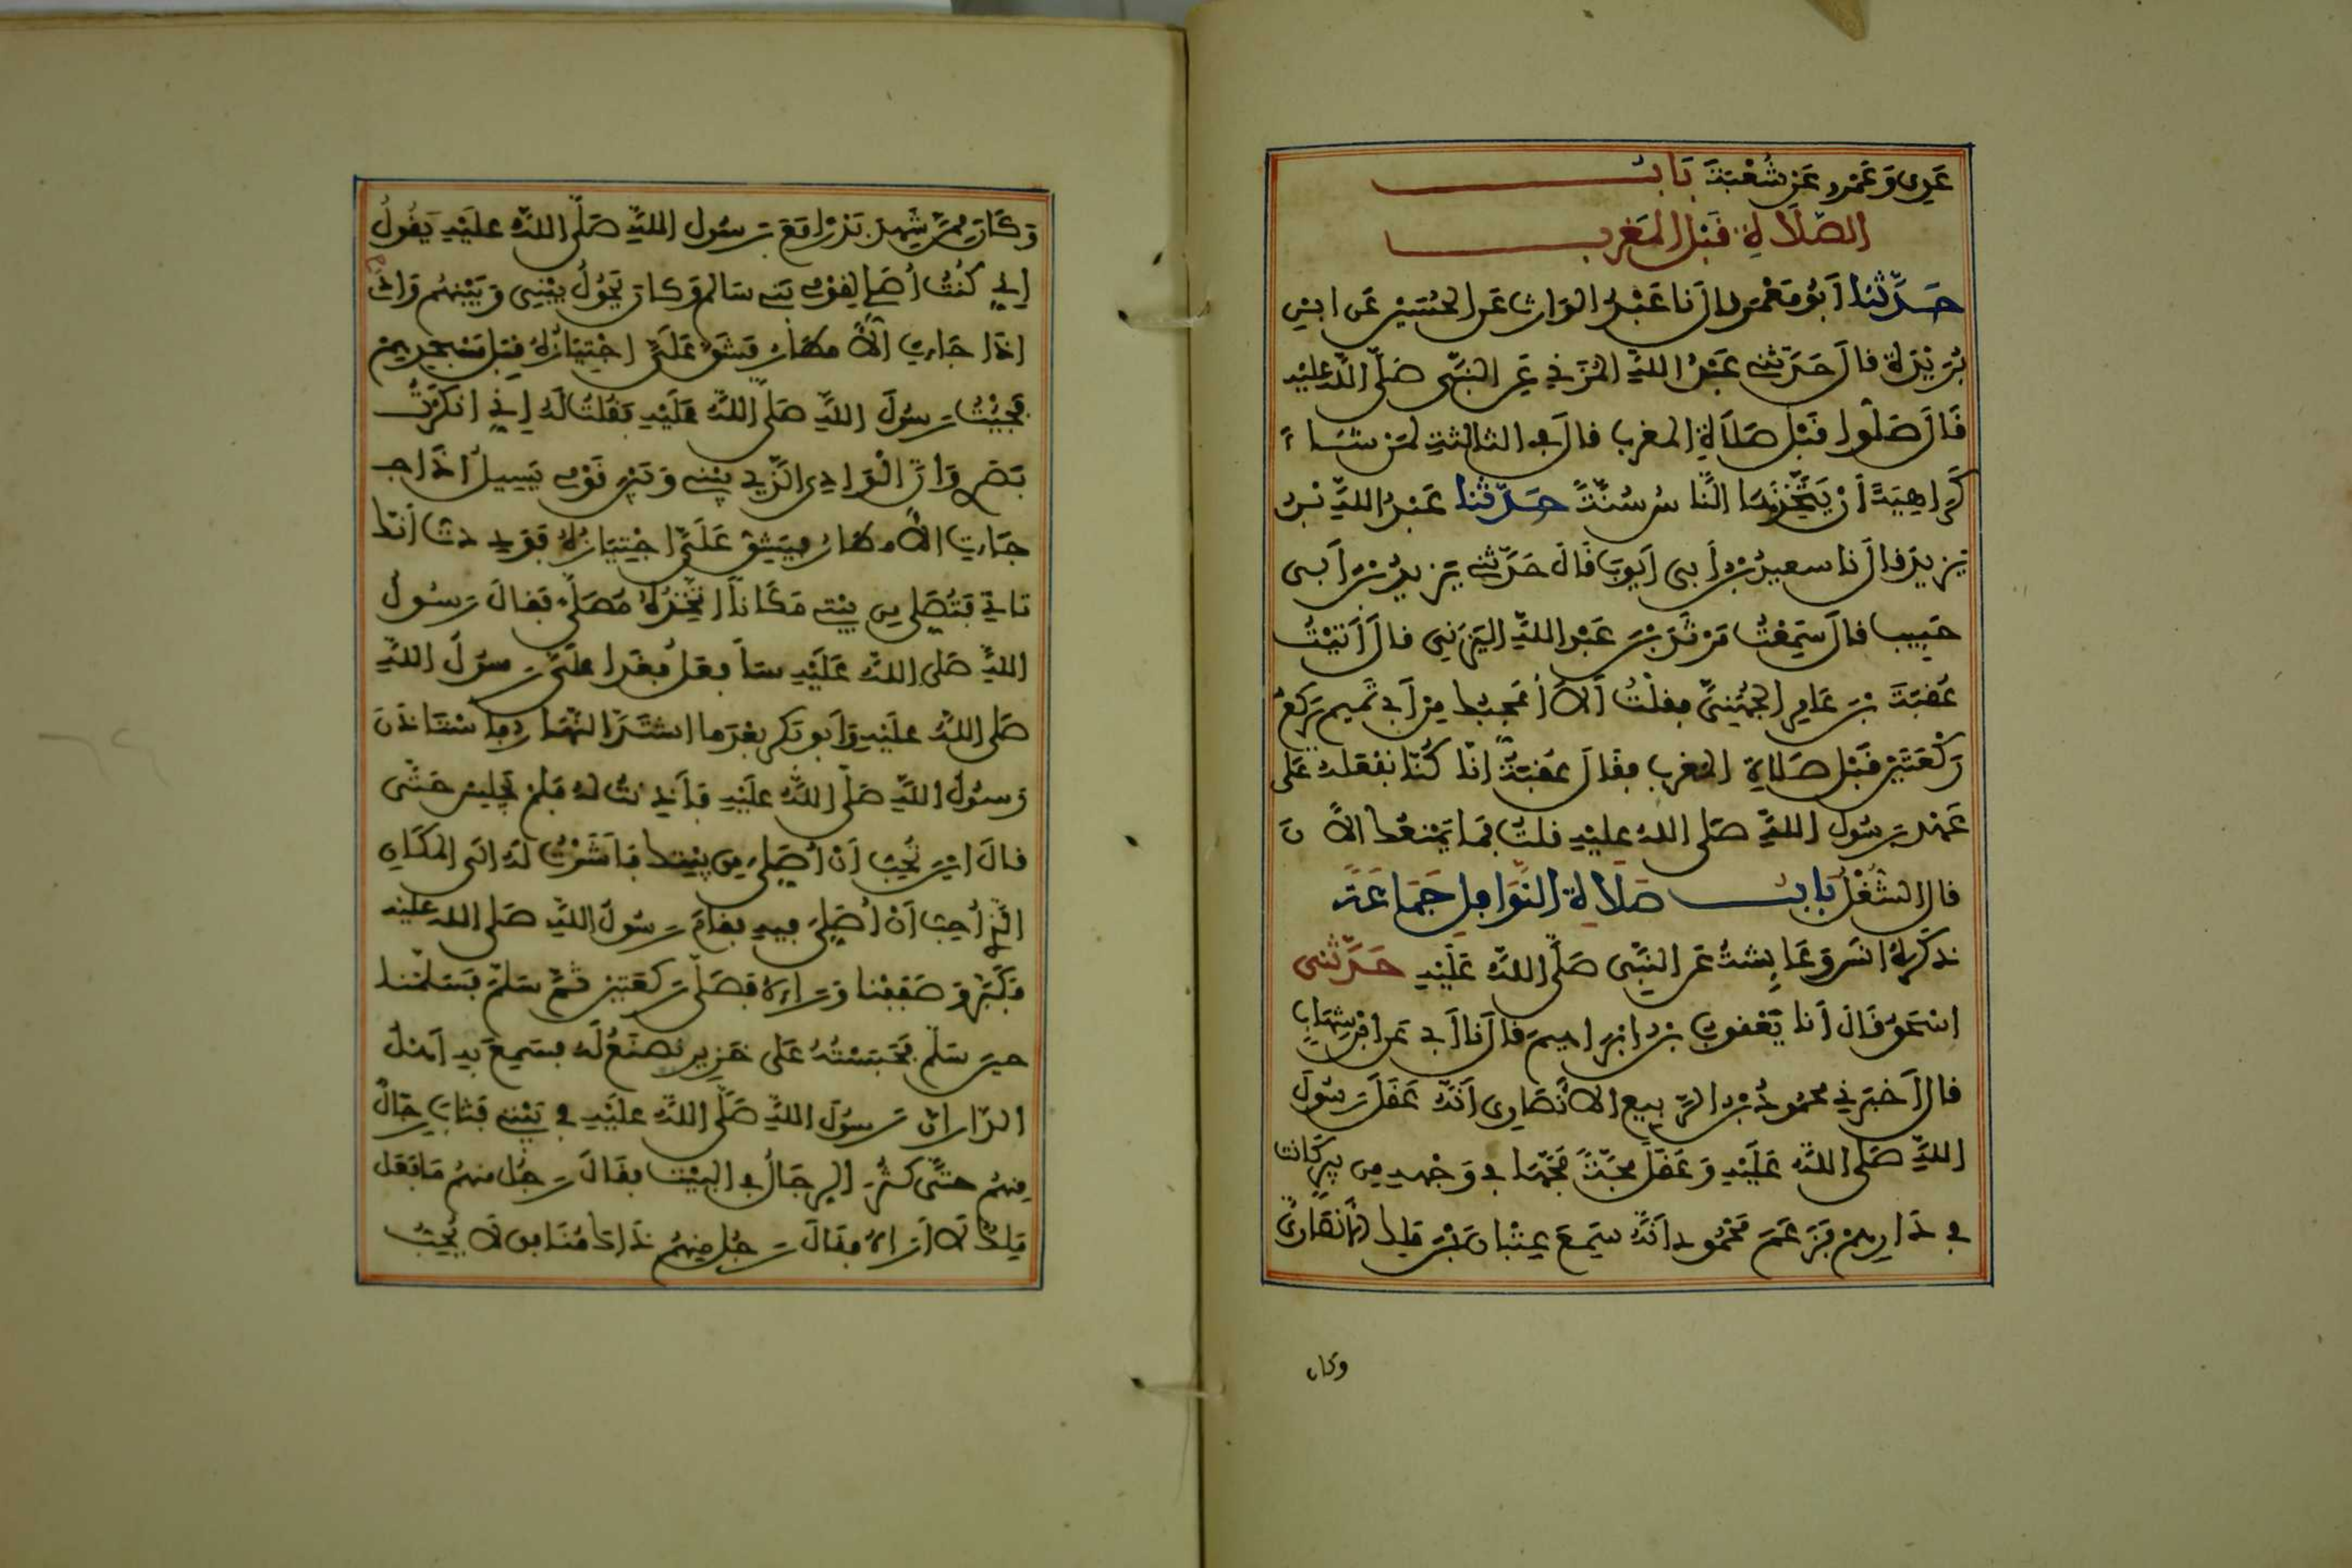 عَدِي وَعَمْرو عَنْ شُعْبَةَ بَابُ
الصَّلَاةِ قَبْلَ الْمَغْرِب
حَدَّثَنَا أَبُو مَعْمَر قال أَنا عَبْدُ الوَارث عَنِ الحُسَيْنِ عَنِ ابْنِ
بُرَيْدَةَ قالَ حَدَّثَنِي عَبْدُ اللَّهِ الْمُزَنِي عَنِ النَّبِيِّ صَلَّى اللَّهُ عَلَيْهِ
قَالَ صَلُّوا قَبْلَ صَلَاةِ المغرب قالَ في الثالثةِ لِمَنْ شَاءَ
كَرَاهِيَةَ أَنْ يَتَّخِذَهَا النَّاسُ سُنَّةً حَدَّثَنَا عَبْدُ اللَّهِ بْنُ
يَزِيدَ قال نَا سعيدُ بْنُ أَبِي أَيُّوبَ قَالَ حَدَّثَنِي يَزِيدُ بْنُ أَبِي
حَبِيب قالَ سَمِعْتُ مَرْثَدَ بْنَ عَبْدِ اللَّهِ اليَزَنِي قالَ أَتَيْتُ
عُقْبَةَ بْنَ عَامِرٍ الْجُهَنِيَّ فقلْتُ أَلَا أُعْجِبُكَ مِنْ أَبِي تَمِيم يَرْكَعُ
رَكْعَتَيْنِ قَبْلَ صَلَاةِ المغرب فقَالَ عُقْبَةُ إِنَّا كُنَّا نَفْعَلُهُ عَلَى
عَهْدِ رَسُولِ اللَّهِ صَلَّى اللهُ عَلَيْهِ قلتُ فَمَا يَمْنَعُكَ الْآنَ
قال الشُّغْلُ بَابُ صَلَاةِ النَّوَافِلِ جَمَاعَةً
ذَكَرَهُ أَنَس وَعَائِشَةُ عَنِ النَّبِيِّ صَلَّى اللَّهُ عَلَيْهِ حَدَّثَنِي
إِسْحَقُ قَالَ أَنا يَعْقُوبُ بْنُ إِبْرَاهِيمَ قالَ أَنا أَبِي عَنِ ابْنِ شِهَابٍ
قالَ أَخْبَرَنِي مَحْمُودُ بْنُ الرَّبِيع الْأَنْصَارِي أَنَّهُ عَقَلَ رَسُولَ
اللَّهِ صَلَّى اللَّهُ عَلَيْهِ وَعَقَلَ مَجَّةً مَجَّهَا فِي وَجْهِهِ مِن بِير كَانت
فِي دَارِهِمْ فَزَعَمَ مَحْمُود أَنَّهُ سَمِعَ عِتْبَانَ بْنَ مَالِك الْأَنْصَارِيَّ
وكان
وَكَانَ مِمَّنْ شَهِدَ بَدْرًا مَعَ رَسُولِ اللَّهِ صَلَّى اللَّهُ عَلَيْهِ يَقُولُ
إِنِّي كُنْتُ أُصَلِّي لِقَوْمِي بَنِي سَالِم وَكانَ يَحُولُ بَيْنِي وَبَيْنَهُم وَادٍ
إِذَا جَاءَتِ الْأَمْطَارُ فَيَشُقُّ عَلَيَّ اجْتِيَازُهُ قِبَلَ مَسْجِدِهِمْ
فَجِئْتُ رَسُولَ اللَّهِ صَلَّى اللَّهُ عَلَيْهِ فَقُلْتُ لَهُ إِنِّي أَنْكَرْتُ
بَصَرِي وَإِنَّ الْوَادِي الَّذِي بَيْنِي وَبَيْنَ قَوْمِي يَسِيلُ إِذَا جـ
جَاءَتِ الْأَمْطَارُ فَيَشُقُّ عَلَيَّ اجْتِيَازُهُ فَوَدِدتُ أَنَّكَ
تَأْتِي فَتُصَلِّي مِن بَيْتِي مَكَانًا أَتَّخِذُهُ مُصَلًّى فَقَالَ رَسُولُ
اللَّهِ صَلَّى اللَّهُ عَلَيْهِ سَأَفْعَلُ فَغَدَا عَلَيَّ رَسُولُ اللَّهِ
صَلَّى اللَّهُ عَلَيْهِ وَأَبُو بَكْرٍ بَعْدَمَا اشْتَدَّ النَّهَارُ فَاسْتَأْذَنَ
رَسُولُ اللَّهِ صَلَّى اللَّهُ عَلَيْهِ فَأَذِنْتُ لَهُ فَلَمْ يَجْلِسْ حَتَّى
قالَ أَيْنَ تُحِبُّ أَنْ أُصَلِّيَ مِن بَيْتِكَ فَأَشَرْتُ لَهُ إِلَى الْمَكَانِ
الَّذِي أُحِبُّ أَنْ أُصَلِّيَ فِيهِ فَقَامَ رَسُولُ اللَّهِ صَلَّى اللهُ عَلَيْهِ
فَكَبَّرَ وَصَفَفْنَا وَرَاءَهُ فَصَلَّى رَكْعَتَيْنِ ثُمَّ سَلَّمَ فَسَلَّمْنَا
حِينَ سَلَّمَ فَحَبَسْتُهُ عَلَى خَزِيرٍ نَصْنَعُ لَهُ فَسَمِعَ بِهِ أَهْلُ
الدَّارِ أَنَّ رَسُولَ اللَّهِ صَلَّى اللَّهُ عَلَيْهِ فِي بَيْتِي فَثَابَ رِجَالٌ
مِنْهُم حَتَّى كَثُرَ الرِّجَالُ فِي الْبَيْتِ فَقَالَ رَجُل مِنْهُم مَا فَعَلَ
مَالِكٌ لَا أَرَاهُ فَقَالَ رَجُل مِنْهُم ذَاكَ مُنَافِق لَا يُحِبُّ